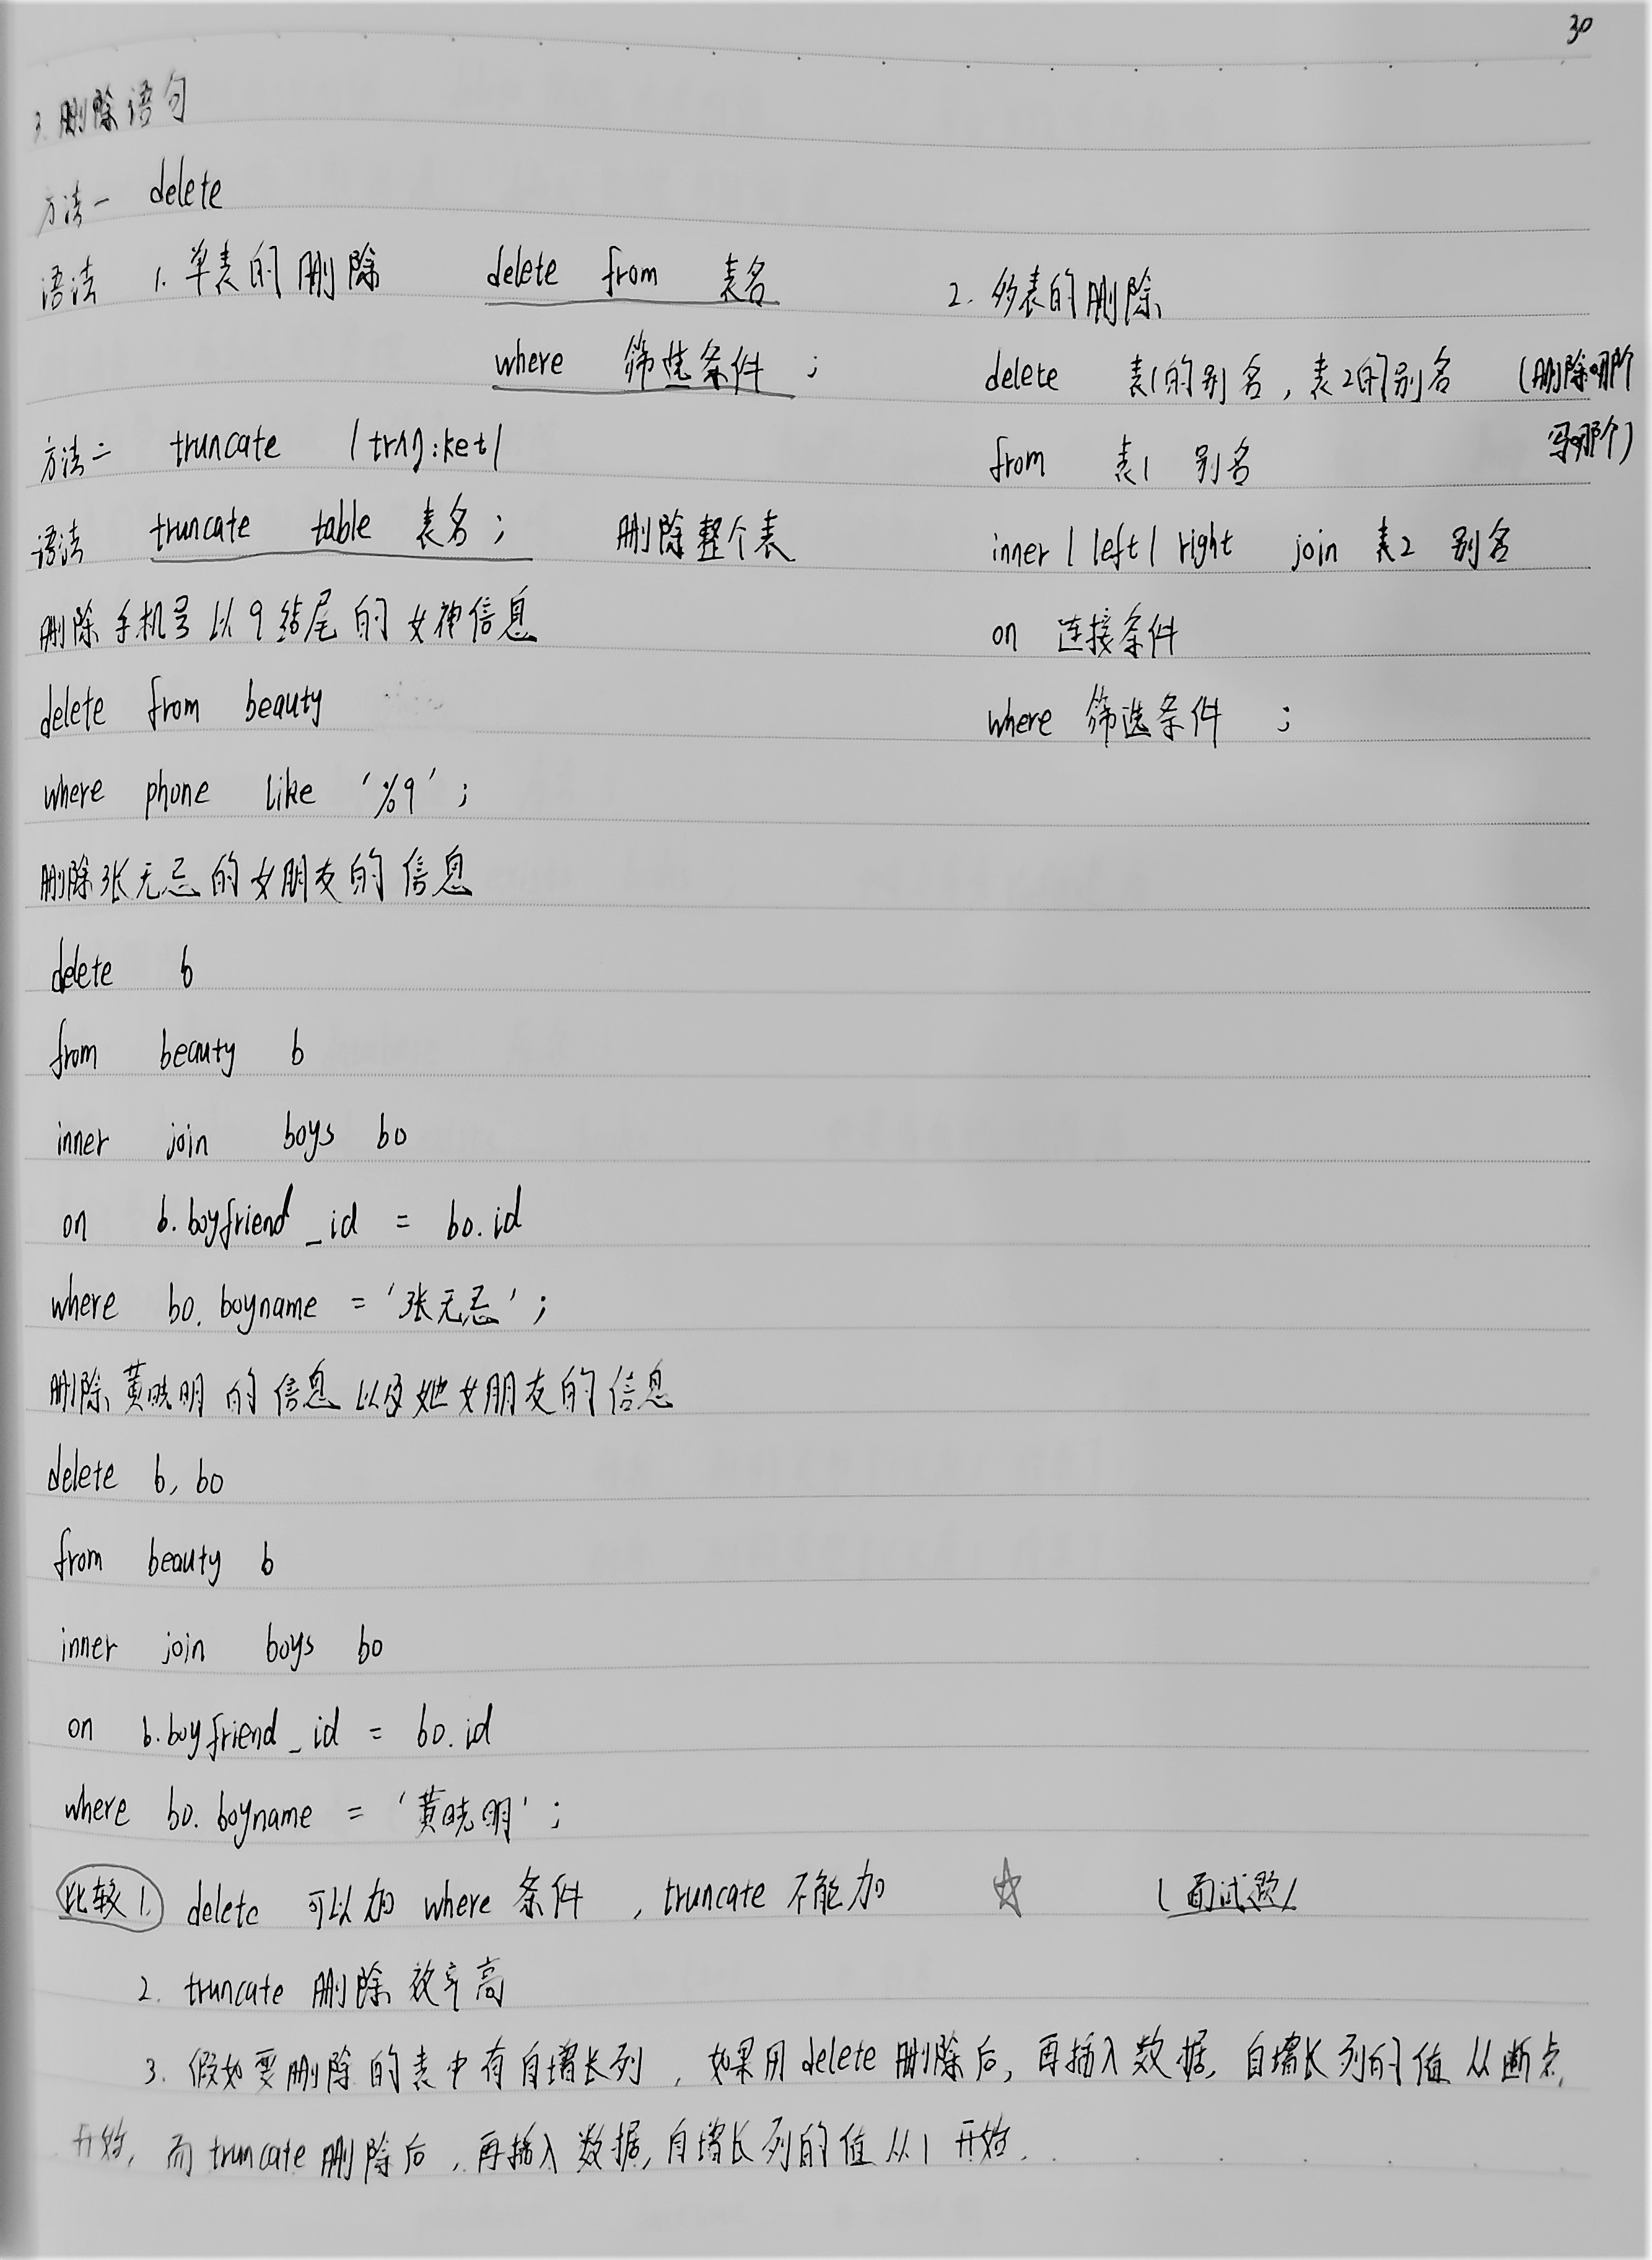 30
3. 删除语句
方法一 delete
语法 1. 单表的删除 delete from 表名
where 筛选条件 ;
方法二 truncate /trʌŋ:ket/
语法 truncate table 表名 ; 删除整个表
2. 多表的删除
delete 表1的别名 , 表2的别名 (删除哪个
写哪个)
from 表1 别名
inner | left | right join 表2 别名
on 连接条件
where 筛选条件 ;
删除手机号以9结尾的女神信息
delete from beauty
where phone like '%9' ;
删除张无忌的女朋友的信息
delete b
from beauty b
inner join boys bo
on b.boyfriend_id = bo.id
where bo.boyname = '张无忌' ;
删除黄晓明的信息以及她女朋友的信息
delete b, bo
from beauty b
inner join boys bo
on b.boyfriend_id = bo.id
where bo.boyname = '黄晓明' ;
比较 1. delete 可以加 where 条件 , truncate 不能加 ☆ (面试题)
2. truncate 删除效率高
3. 假如要删除的表中有自增长列 , 如果用 delete 删除后, 再插入数据, 自增长列的值从断点
开始, 而 truncate 删除后 , 再插入数据, 自增长列的值从1开始.